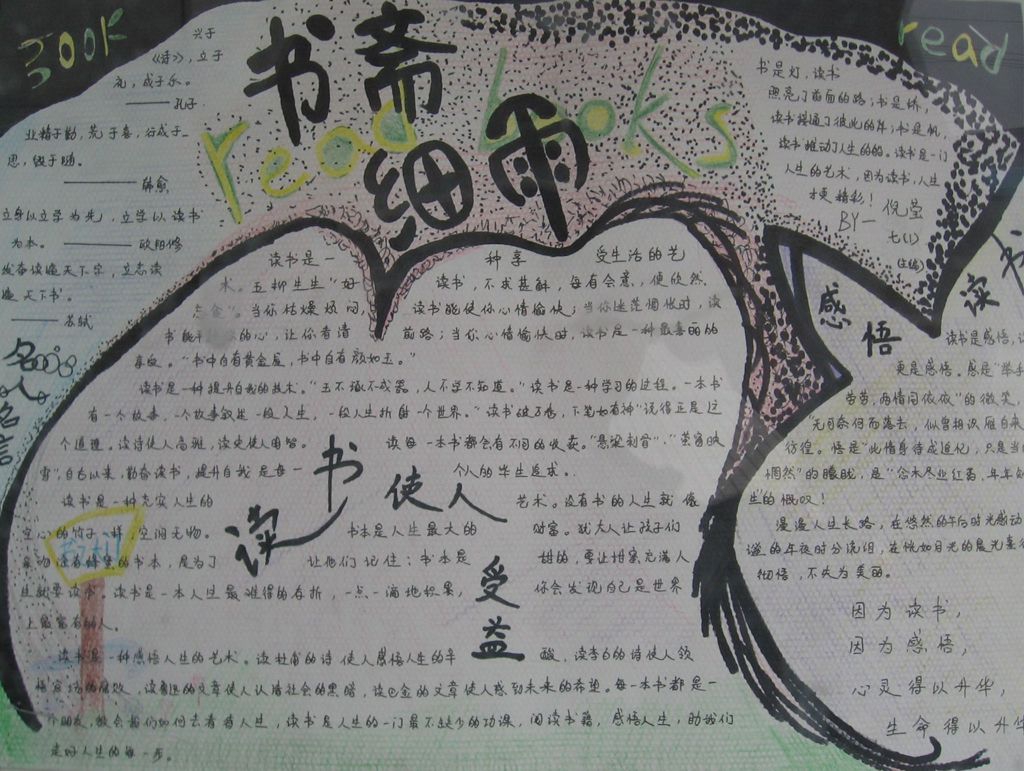 Book
read
read books
书斋
细雨
兴于
《诗》,立于
礼,成于乐。
——孔子
业精于勤,荒于喜,行成于
思,毁于随。
——韩愈
立身以立学为先,立学以读书
为本。——欧阳修
发奋识遍天下字,立志读
遍天下书。
——苏轼
名人名言
书是灯,读书
照亮了前面的路;书是桥,
读书接通了彼此的岸;书是帆,
读书推动了人生的船。读书是一门
人生的艺术,因为读书,人生
才更精彩!
BY—倪莹
七(1)
读书是一种享受生活的艺
术。五柳先生"好读书,不求甚解,每有会意,便欣然
忘食"。当你枯燥烦闷,读书能使你心情愉快;当你迷茫惆怅时,读
书能平你的心,让你看清前路;当你心情愉快时,读书是一种最喜的的
享受。"书中自有黄金屋,书中自有颜如玉。"
读书是一种提升自我的技术。"玉不琢不成器,人不学不知道。"读书是一种学习的过程。一本书
有一个故事,一个故事叙述一段人生,一段人生折射一个世界。"读书破万卷,下笔如有神"说得正是这
个道理。读诗使人高雅,读史使人明智。读每一本书都会有不同的收获。"悬梁刺骨"、"萤窗映
雪",自古以来,勤奋读书,提升自我是每一个人的毕生追求。
读书是一种充实人生的艺术。没有书的人生就像
空心的竹子一样,空洞无物。书本是人生最大的财富。犹太人让孩子们
让他们记住:书本是甜的,要让甜蜜充满人
生就要读书。读书是一本人生最难得的存折,一点一滴地积累,你会发现自己是世界
上最富有的人。
读书是一种感悟人生的艺术。读杜甫的诗使人感悟人生的辛酸,读李白的诗使人领
悟官场的腐败,读鲁迅的文章使人认清社会的黑暗,读巴金的文章使人感到未来的希望。每一本书都是一
个朋友,教会我们如何去看待人生,读书是人生的一门最不缺少的功课,阅读书籍,感悟人生,助我们
走好人生的每一步。
读书使人
受益
感悟
读书
读书是感悟,
更是感悟。感是"举手
劳劳,两情同依依"的微笑,
"无可奈何而落去,似曾相识雁自来
彷徨。悟是"此情身待成追忆,只是当
惘然"的
生的慨叹!
漫漫人生长路,在悠然的午后时光感动
彻悟,不失为美丽。
因为读书,
因为感悟,
心灵得以升华,
生命得以升华